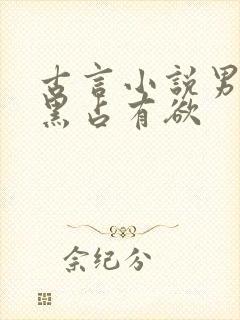 古言小说男
黑占有欲
余纪分